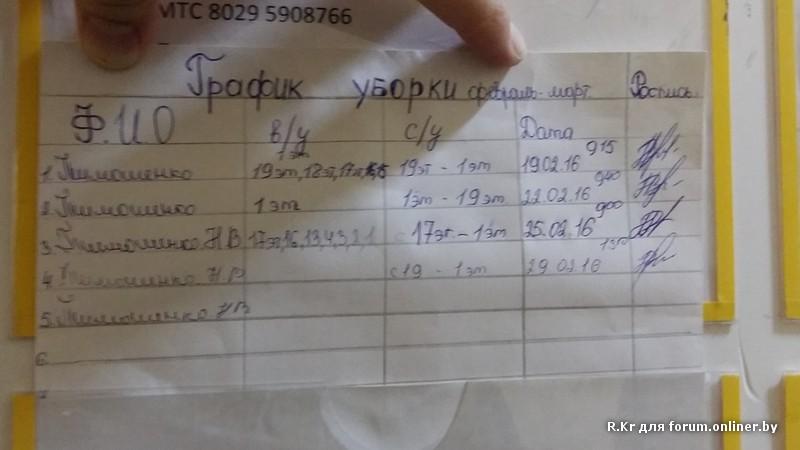 МТС 8029 5908766
График уборки февраль-март. Роспись
Ф.И.О в/у с/у Дата
1 эт
1. Тимошенко 19эт, 18эт, 17эт 19эт - 1эт 19.02.16 9 15
2. Тимошенко 1эт 1эт - 19эт 22.02.16 9 00
3. Тимошенко НВ 17эт,16,13,4,3,2,1 с 17эт. - 1эт 25.02.16 9 00
4. Тимошенко НВ с19 - 1эт 29.02.16
5. Тимошенко НВ
6.
R.Kr для forum.onliner.by